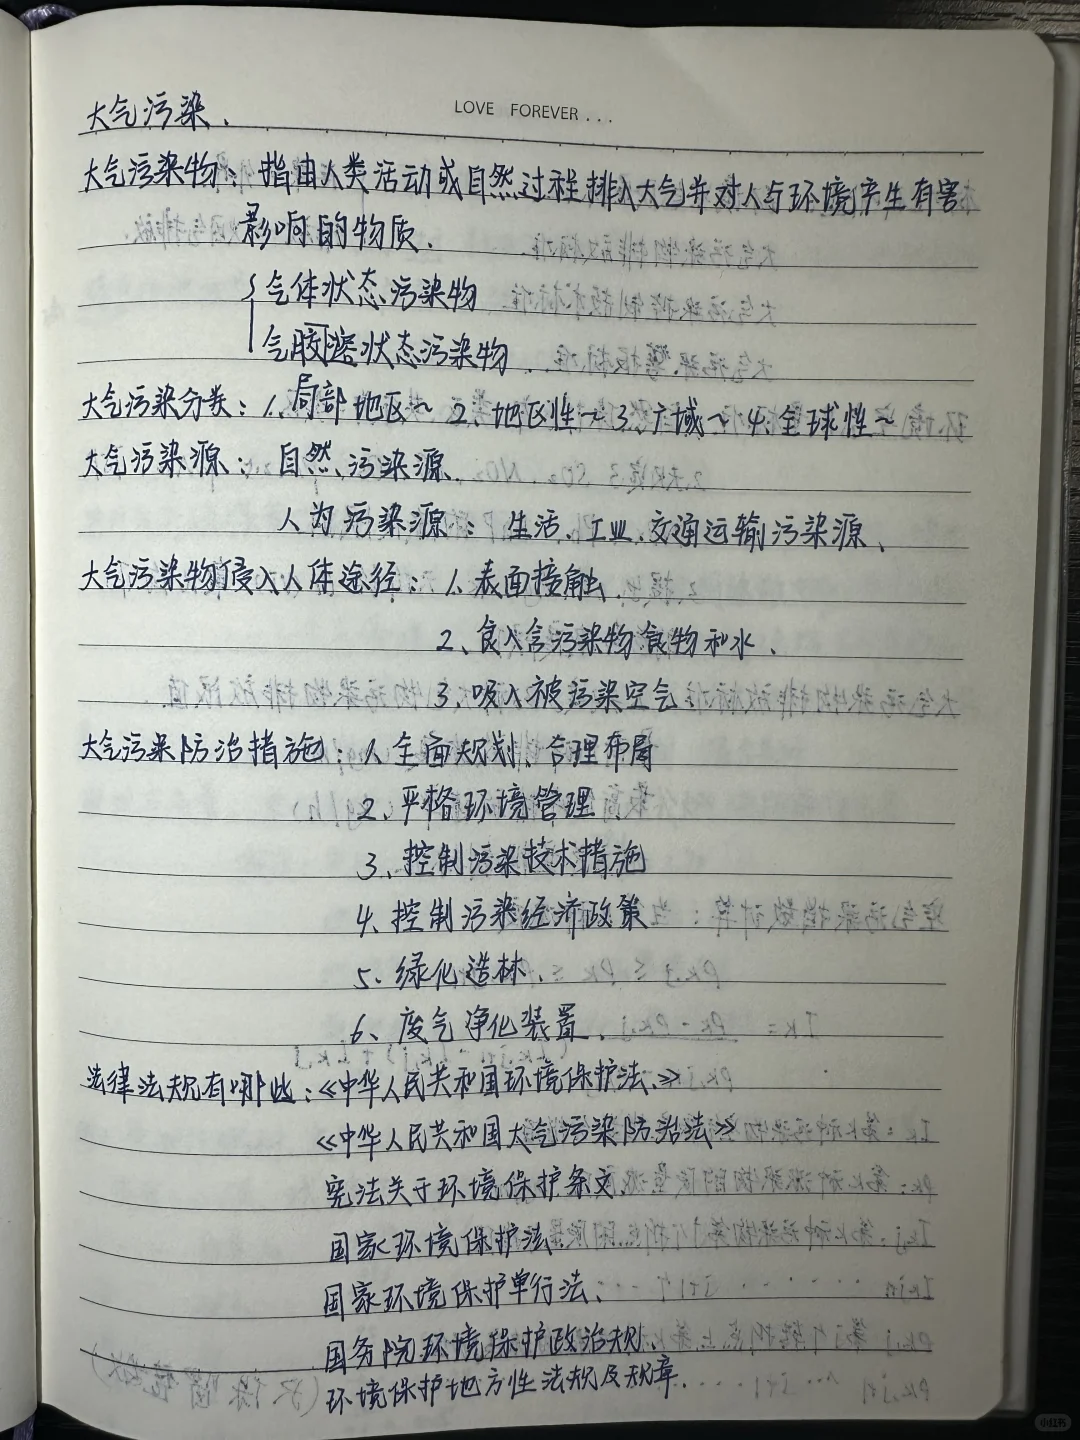 LOVE FOREVER...
大气污染.
大气污染物：指由人类活动或自然过程排入大气并对人与环境产生有害
影响的物质.
气体状态污染物
气胶溶状态污染物.
大气污染分类：1.局部地区~ 2.地区性~ 3.广域~ 4.全球性~
大气污染源：自然污染源.
人为污染源：生活、工业、交通运输污染源、
大气污染物侵入人体途径：1.表面接触.
2、食入含污染物食物和水、
3.吸入被污染空气
大气污染防治措施：1.全面规划，合理布局
2.严格环境管理
3、控制污染技术措施
4.控制污染经济政策
5、绿化造林.
6、废气净化装置.
法律法规有哪些：《中华人民共和国环境保护法.》
《中华人民共和国大气污染防治法》
宪法关于环境保护条文
国家环境保护法
国家环境保护单行法、
国务院环境保护政治规.
环境保护地方性法规及规章.
小红书